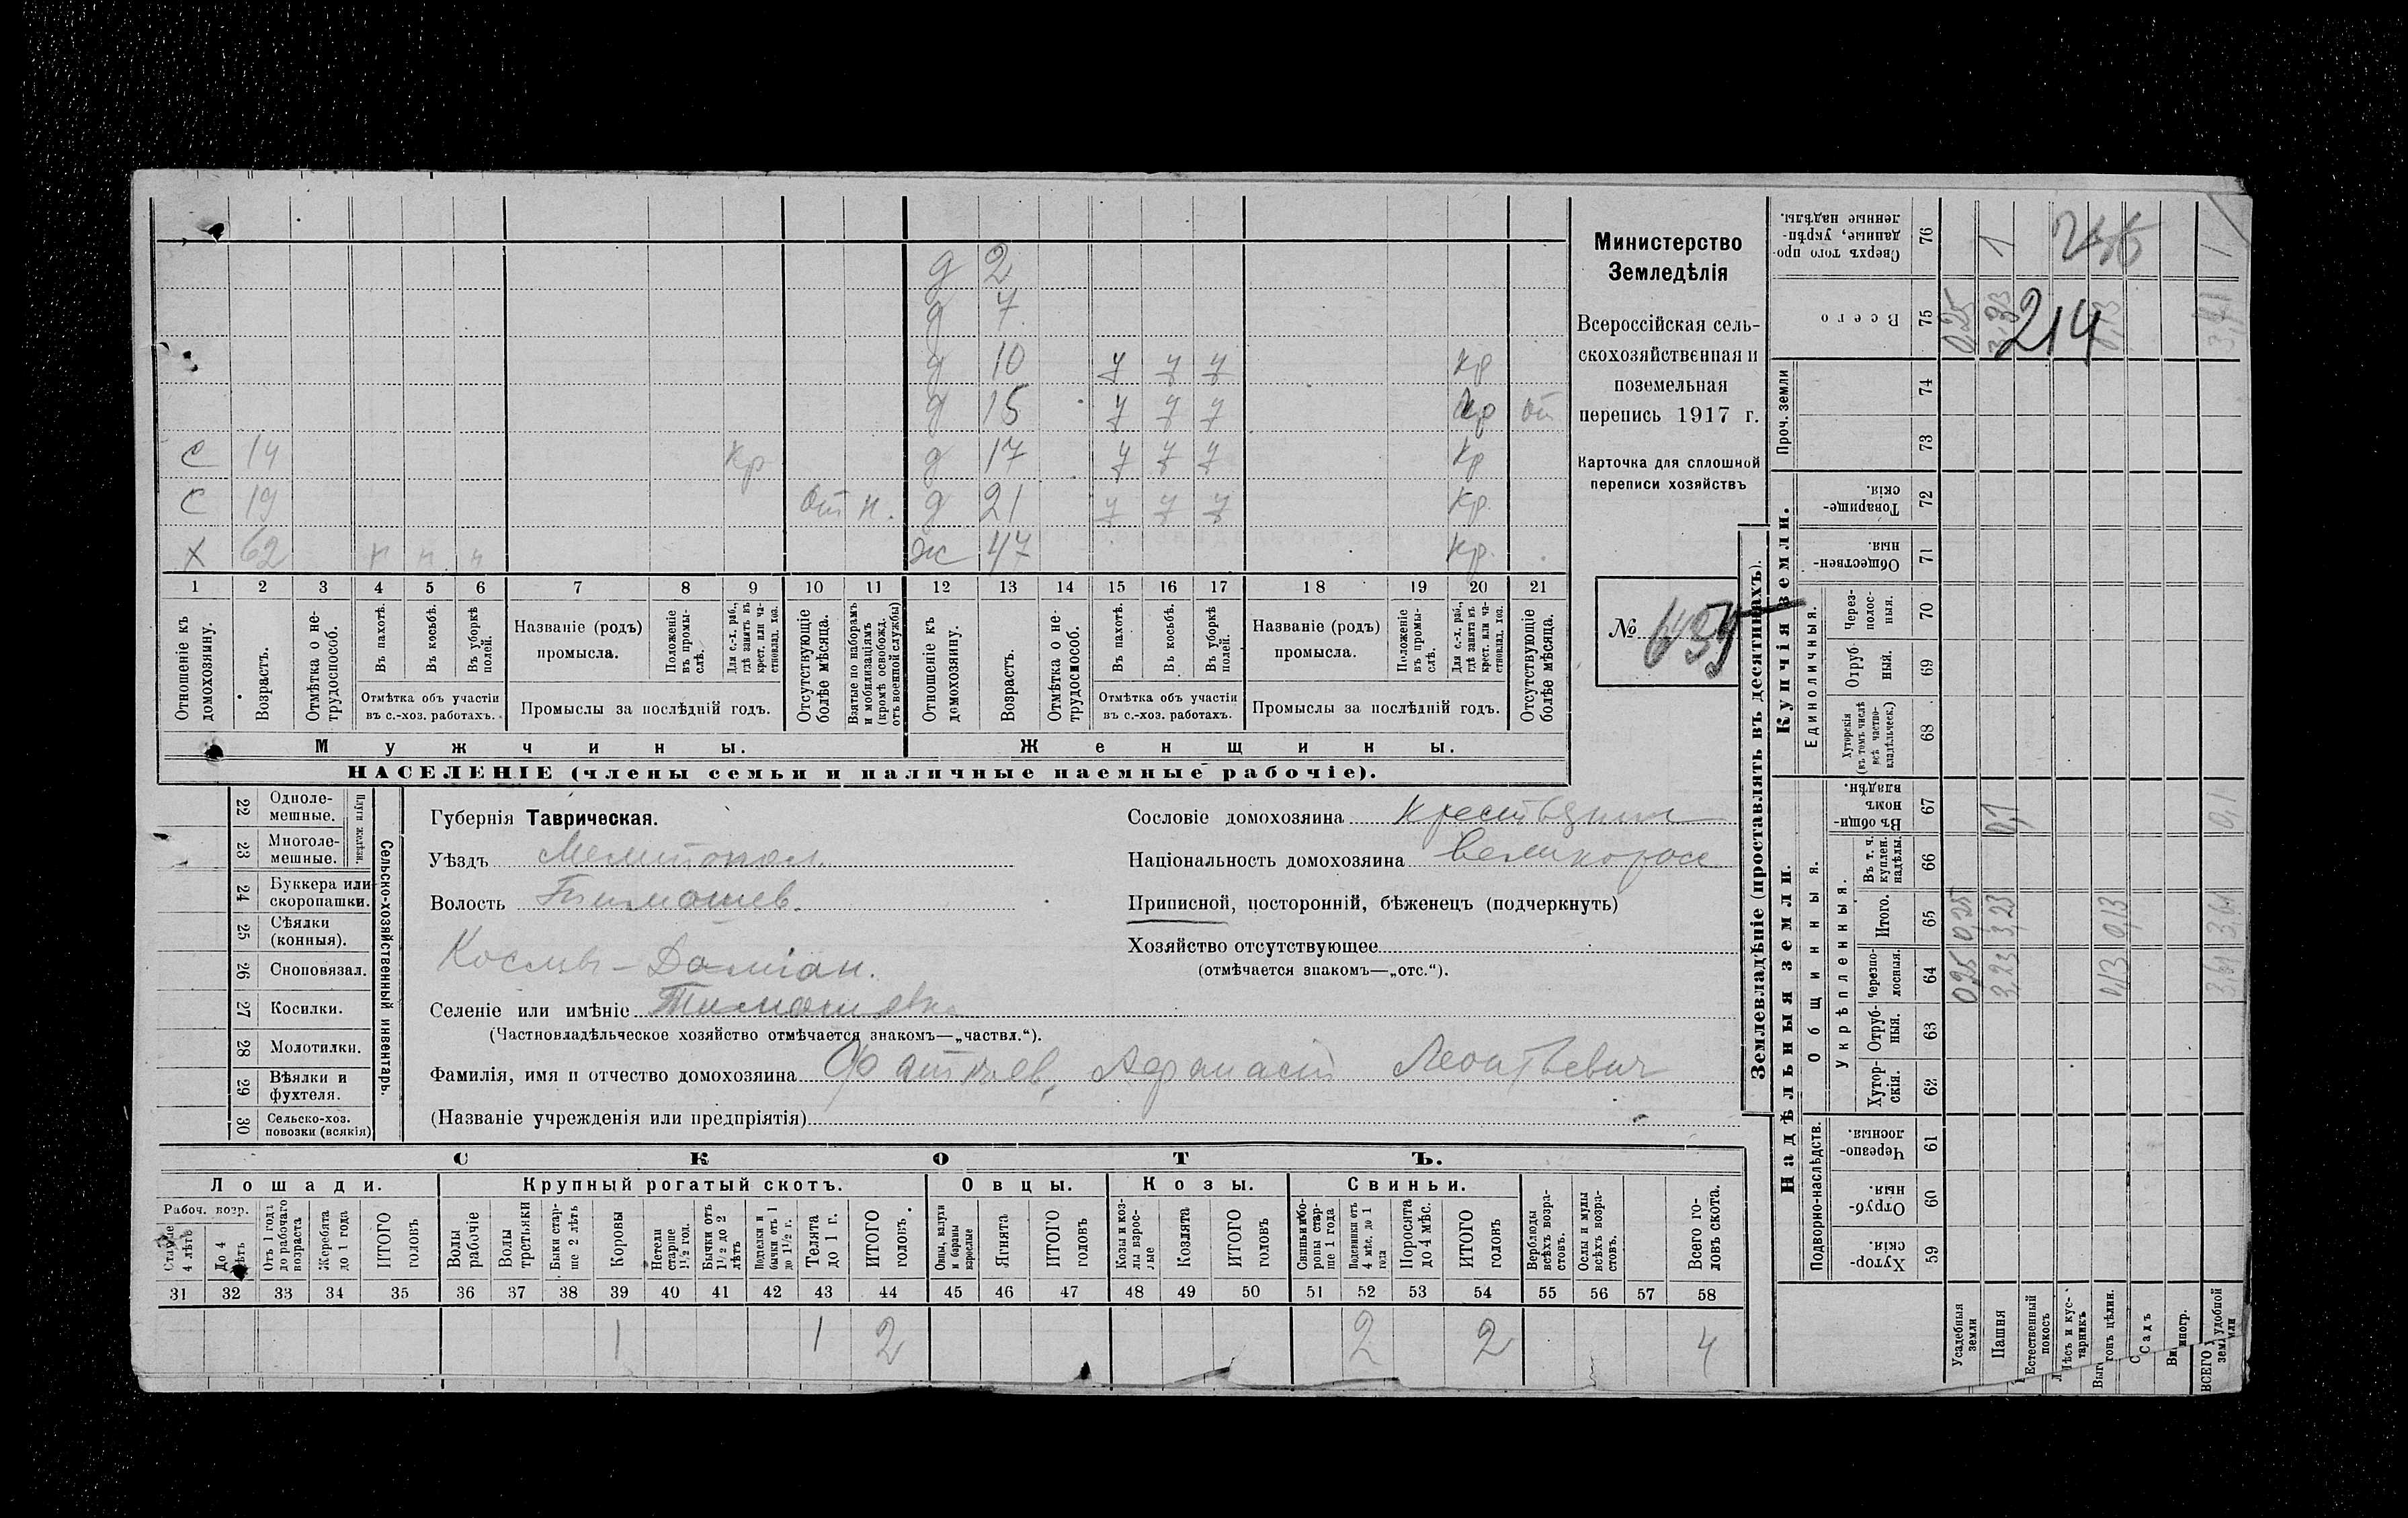 д 2
д 7
д 10 у у у кр
д 15 у у у кр от
С 14 кр д 17 у у у кр
С 19 от н. д 21 у у у кр.
Х 62 п п п ж 47 кр.
1 2 3 4 5 6 7 8 9 10 11 12 13 14 15 16 17 18 19 20 21
Отношеніе къ домохозяину.
Возрастъ.
Отмѣтка о не-трудоспособ.
Въ пахотѣ.
Въ косьбѣ.
Въ уборкѣ полей.
Отмѣтка объ участіи въ с.-хоз. работахъ.
Названіе (родъ) промысла.
Положеніе въ промы-слѣ.
Для с.-х. раб., гдѣ занятъ въ крест. или ча-стновлад. хоз.
Промыслы за послѣдній годъ.
Отсутствующіе болѣе мѣсяца.
Взятые по наборамъ и мобилизаціямъ (кромѣ освобожд. отъ военной службы)
Отношеніе къ домохозяину.
Возрастъ.
Отмѣтка о не-трудоспособ.
Въ пахотѣ.
Въ косьбѣ.
Въ уборкѣ полей.
Отмѣтка объ участіи въ с.-хоз. работахъ.
Названіе (родъ) промысла.
Положеніе въ промы-слѣ.
Для с.-х. раб., гдѣ занята въ крест. или ча-стновлад. хоз.
Промыслы за послѣдній годъ.
Отсутствующіе болѣе мѣсяца.
Мужчины. Женщины.
НАСЕЛЕНІЕ (члены семьи и наличные наемные рабочіе).
Министерство
Земледѣлія
Всероссійская сель-
скохозяйственная и
поземельная
перепись 1917 г.
Карточка для сплошной
переписи хозяйствъ
№
Сельско-хозяйственный инвентарь.
Плуги желѣзн.
22 Одноле-мешные.
23 Многоле-мешные.
24 Буккера или скоропашки.
25 Сѣялки (конныя).
26 Сноповязал.
27 Косилки.
28 Молотилки.
29 Вѣялки и фухтеля.
30 Сельско-хоз. повозки (всякія)
Губернія Таврическая.
Уѣздъ Мелитопол.
Волость Тимошев.
Космо-Даміан.
Селеніе или имѣніе Тимошевка
(Частновладѣльческое хозяйство отмѣчается знакомъ—„частвл.“).
Фамилія, имя и отчество домохозяина Фатѣев, Афанасій Леонтьевич
(Названіе учрежденія или предпріятія)
Сословіе домохозяина крестьянин
Національность домохозяина великоросс
Приписной, посторонній, бѣженецъ (подчеркнуть)
Хозяйство отсутствующее
(отмѣчается знакомъ—„отс.“).
СКОТЪ.
Лошади. Крупный рогатый скотъ. Овцы. Козы. Свиньи.
Рабоч. возр.
Старше 4 лѣтъ
До 4 лѣтъ
Отъ 1 года до рабочаго возраста
Жеребята до 1 года
ИТОГО головъ
Волы рабочіе
Волы третьяки
Быки стар-ше 2 лѣтъ
Коровы
Нетели старше 1½ год.
Бычки отъ 1½ до 2 лѣтъ
Подтелки и бычки отъ 1 до 1½ г.
Телята до 1 г.
ИТОГО головъ.
Овцы, валухи и бараны взрослые
Ягнята
ИТОГО головъ
Козы и коз-лы взрос-лые
Козлята
ИТОГО головъ
Свиньи и бо-ровы стар-ше 1 года
Подсвинки отъ 4 мѣс. до 1 года
Поросята до 4 мѣс.
ИТОГО головъ
Верблюды всѣхъ возра-стовъ.
Ослы и мулы всѣхъ возра-стовъ.
Всего го-ловъ скота.
31 32 33 34 35 36 37 38 39 40 41 42 43 44 45 46 47 48 49 50 51 52 53 54 55 56 57 58
1 1 2 2 2 4
Землевладѣніе (проставлять въ десятинахъ).
Надѣльныя земли. Купчія земли.
Подворно-наслѣдств. Общинныя. Единоличныя. Проч. земли
Укрѣпленныя.
59 Хутор-скія.
60 Отруб-ныя.
61 Черезпо-лосныя.
62 Хутор-скія.
63 Отруб-ныя.
64 Черезпо-лосныя.
65 Итого.
66 Въ т. ч. куплен. надѣлы.
67 Въ общи-номъ владѣн.
68 Хуторскія (въ томъ числѣ всѣ частно-владѣльческ.)
69 Отруб-ный.
70 Через-полос-ныя.
71 Обществен-ныя.
72 Товарище-скія.
73
74
75 Всего
76 Сверхъ того про-данные, укрѣп-ленные надѣлы.
Усадебныя земли 0,25 0,25 0,25
Пашня 3,23 3,23 0,1 3,33 1
Естественный покосъ
Лѣсъ и кус-тарникъ
Выгонъ цѣлин. 0,13 0,13 0,13
Садъ
Виногр.
ВСЕГО удобной земли 3,61 3,61 0,1 3,71 1
214